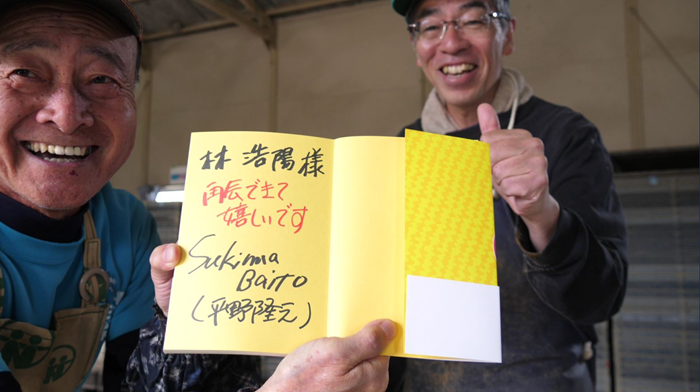 林 浩陽様
再会できて
嬉しいです
Sukima
Baito
(平野隆元)